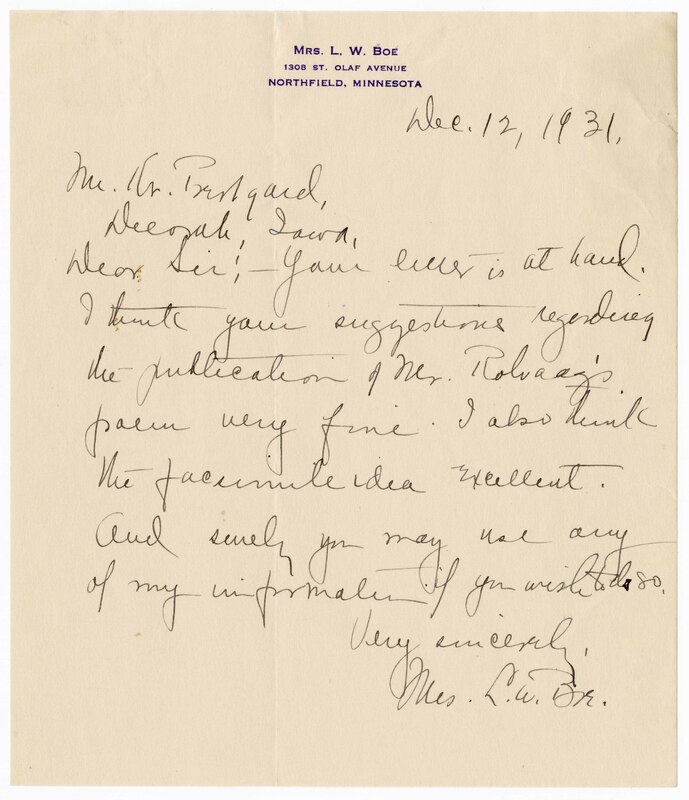 MRS. L. W. BOE
1308 ST. OLAF AVENUE
NORTHFIELD, MINNESOTA
Dec. 12, 1931.
Mr. Kr. Prestgard,
Decorah, Iowa,
Dear Sir! – Your letter is at hand.
I think your suggestions regarding
the publication of Mr. Rolvaag's
poem very fine. I also think
the facsimile idea excellent.
And surely you may use any
of my information if you wish to do so.
Very sincerely,
Mrs. L. W. Boe.